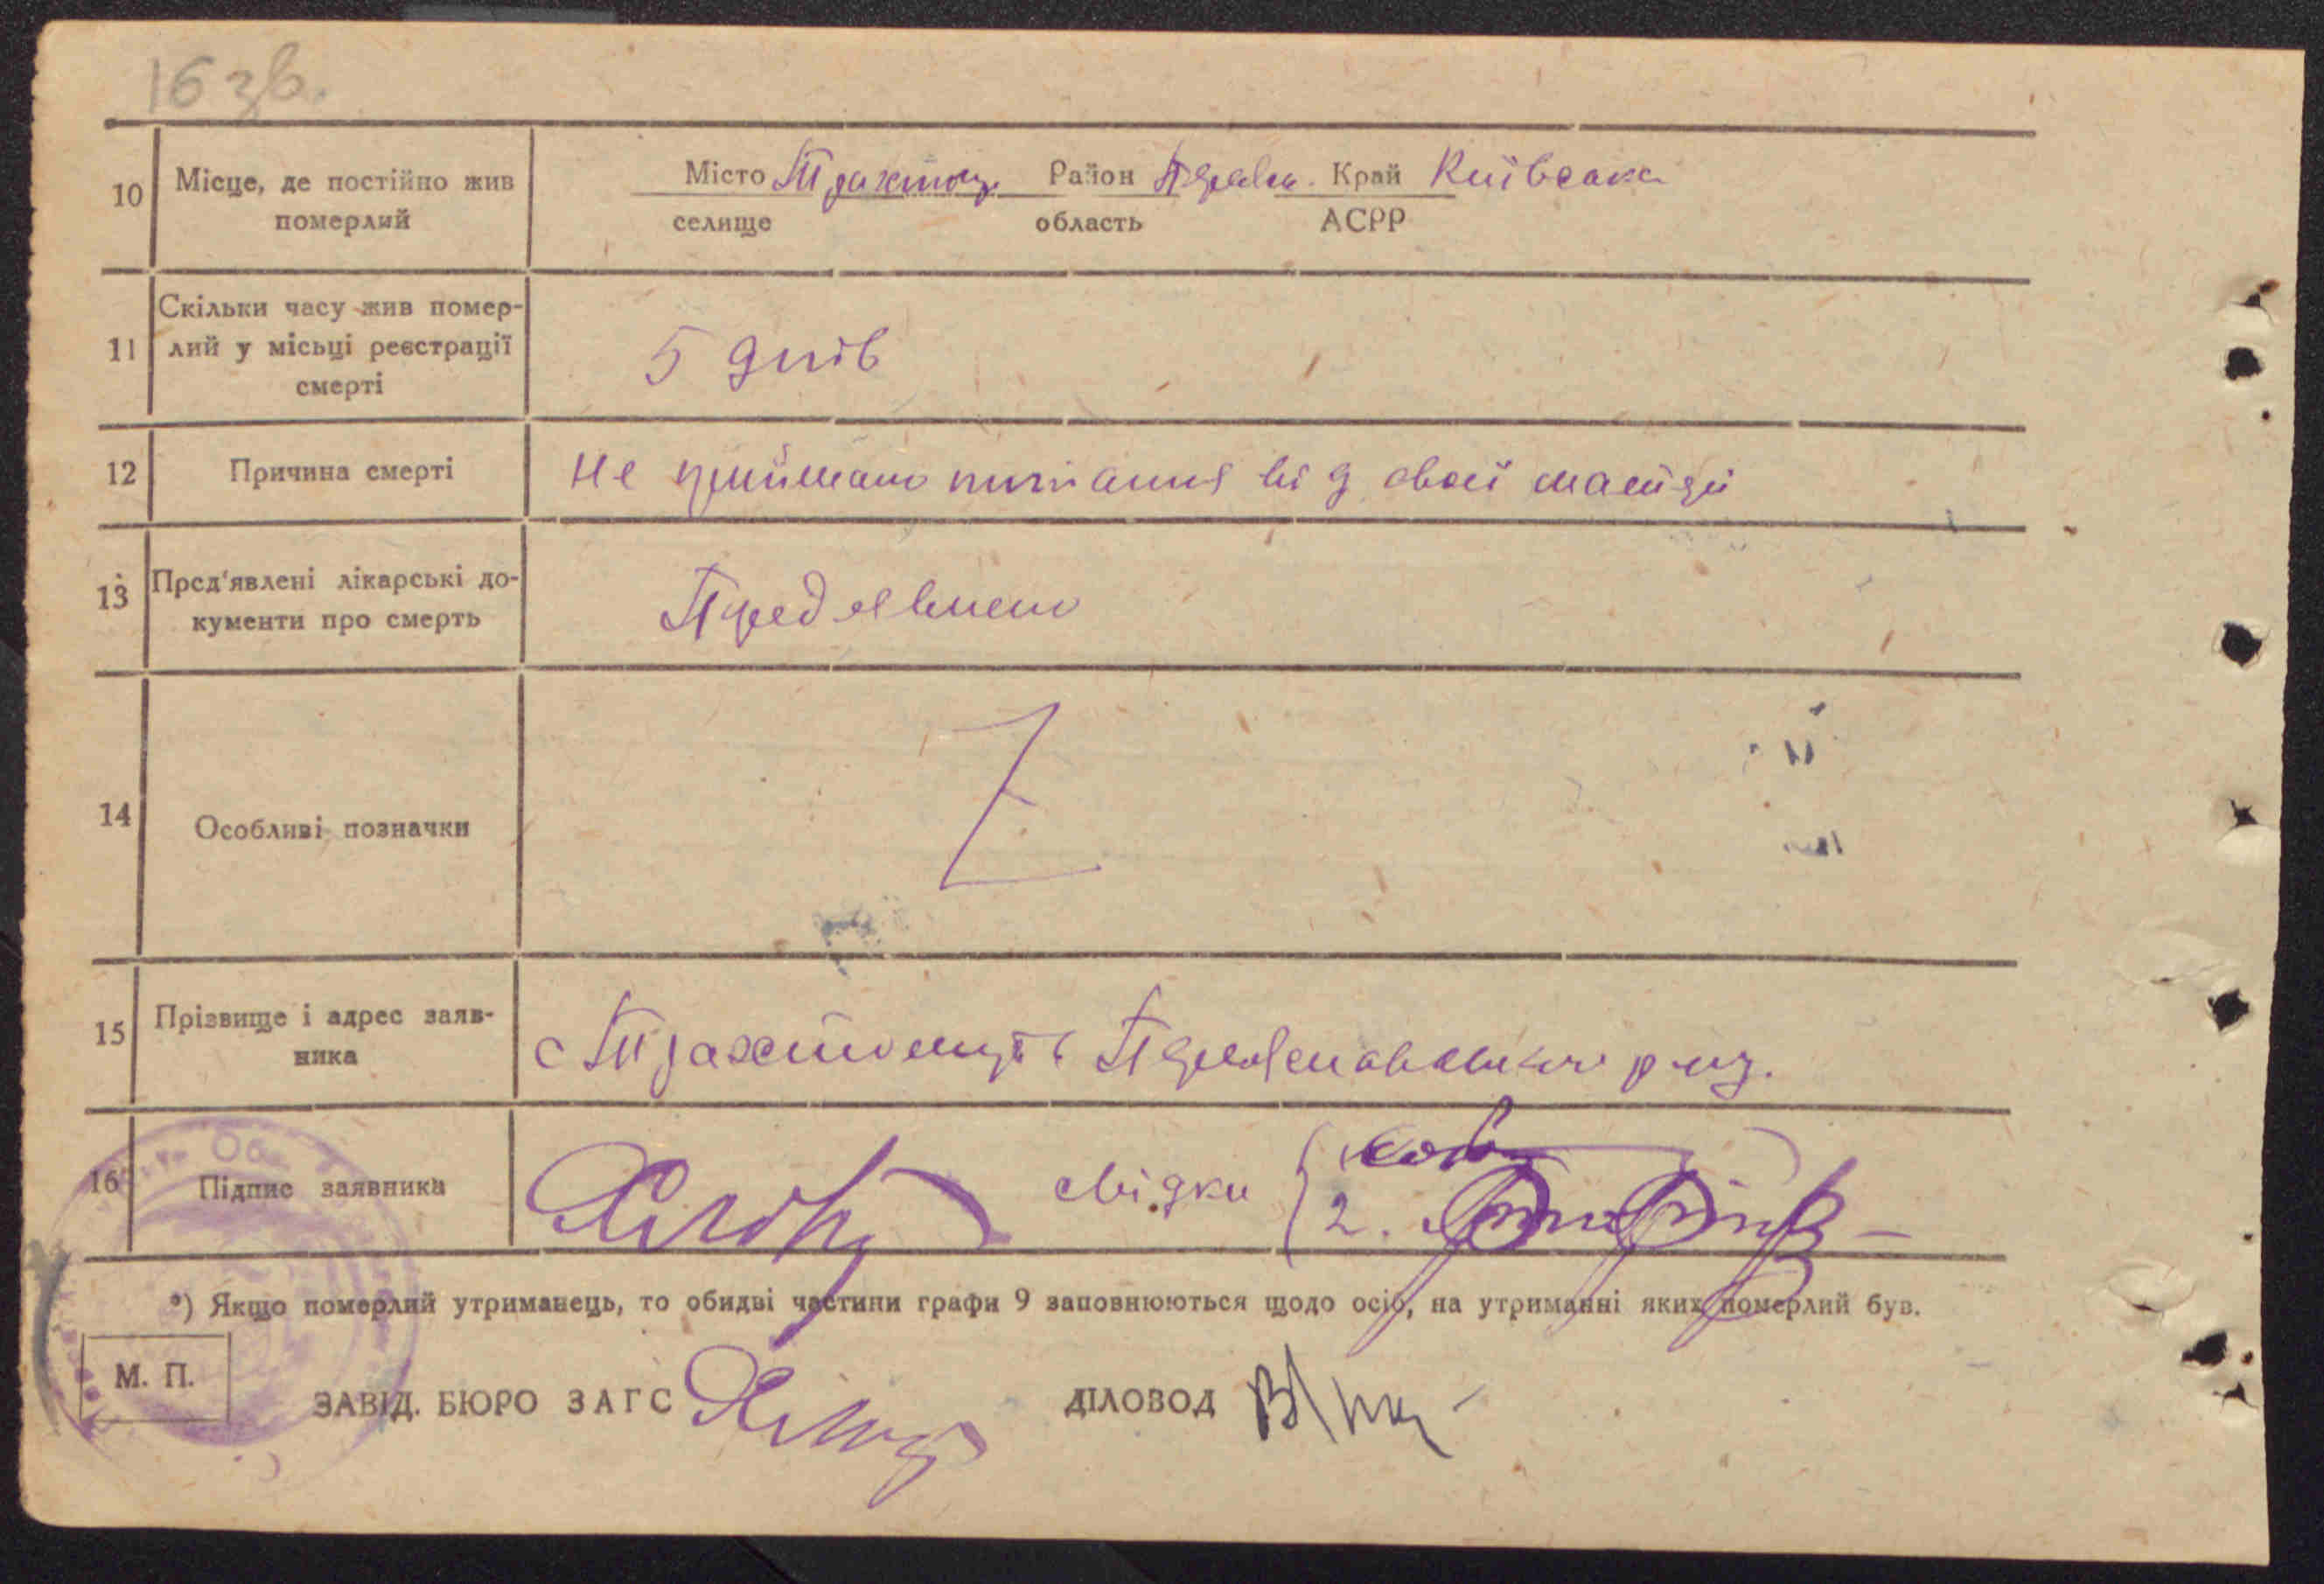 16 зв.
10 Місце, де постійно жив померлий
Місто Трахтом. Район Край Київська
селище область АСРР
11 Скільки часу жив помер-
лий у місьці реєстрації
смерті
5 днів
12 Причина смерті
не приймало питання від своєї матері
13 Пред'явлені лікарські до-
кументи про смерть
Предявлено
14 Особливі позначки
Z
15 Прізвище і адрес заяв-
ника
с
16 Підпис заявника
свідки
2.
*) Якщо померлий утриманець, то обидві частини графи 9 заповнюються щодо осіб, на утриманні яких померлий був.
М. П.
ЗАВІД. БЮРО ЗАГС ДІЛОВОД